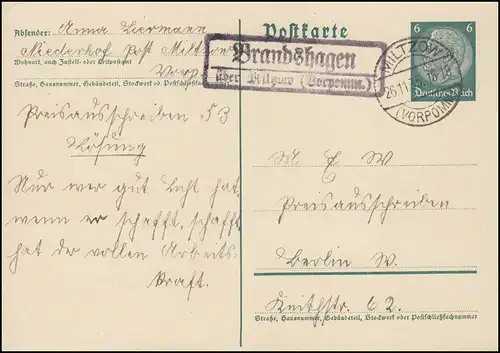 Absender: Anna Liermann
Niederhof Post Miltzow
Wohnort, auch Zustell- oder Leitpostamt
Vorp.
Straße, Hausnummer, Gebäudeteil, Stockwerk od. Postschließfach
Preisausschreiben 53
Lösung
Nur wer gut Licht hat,
wenn er schafft, schafft
hat der vollen Arbeits-
kraft.
Postkarte
Brandshagen
über Miltzow (Vorpomm.)
MILTZOW
26.11.
(VORPOMM)
6 6
Deutsches Reich
M. E W
Preisausschreiben
Berlin W.
Keithstr. 62.
Straße, Hausnummer, Gebäudeteil, Stockwerk oder Postschließfachnummer